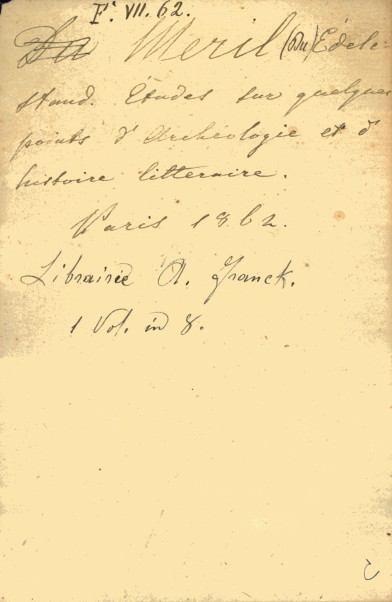 F. VII. 62.
Du Meril (Du) Édele-
stand. Études sur quelques
points d'Archéologie et d'
histoire litteraire.
Paris 1862.
Librairie A. Franck.
1 Vol. in 8.